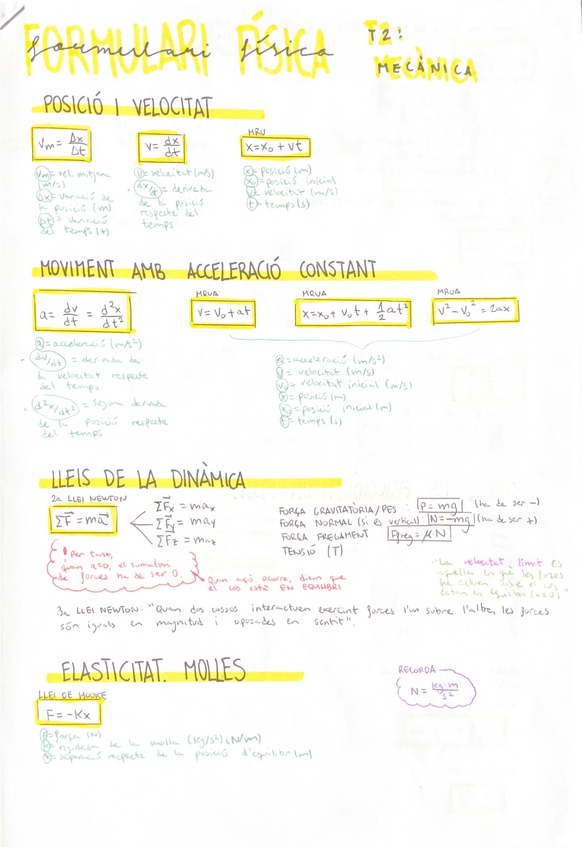 FORMULARI FÍSICA
formulari física
T2:
MECÀNICA
POSICIÓ I VELOCITAT
Vm = Δx/Δt
v = dx/dt
MRU
x = x₀ + vt
Vm = vel. mitjana (m/s)
Δx = variació de la posició (m)
Δt = variació del temps (t)
v = velocitat (m/s)
dx/dt = derivata de la posició respecte del temps
x = posició (m)
x₀ = posició inicial
v = velocitat (m/s)
t = temps (s)
MOVIMENT AMB ACCELERACIÓ CONSTANT
a = dv/dt = d²x/dt²
MRUA
v = v₀ + at
MRUA
x = x₀ + v₀t + 1/2 at²
MRUA
v² - v₀² = 2ax
a = acceleració (m/s²)
dv/dt = derivata de la velocitat respecte del temps
d²x/dt² = segona derivada de la posició respecte del temps
a = acceleració (m/s²)
v = velocitat (m/s)
v₀ = velocitat inicial (m/s)
x = posició (m)
x₀ = posició inicial (m)
t = temps (s)
LLEIS DE LA DINÀMICA
2a LLEI NEWTON
ΣF⃗ = ma⃗
ΣF⃗x = max
ΣF⃗y = may
ΣF⃗z = maz
FORÇA GRAVITATÒRIA/PES: P = mg (ha de ser -)
FORÇA NORMAL (si és vertical): N = -mg (ha de ser +)
FORÇA FREGAMENT Ffreg = μN
TENSIÓ (T)
! Per tant, quan a=0, el sumatori de forces ha de ser 0.
Quan açò ocorre, diem que el cos està EN EQUILIBRI
"La velocitat límit és aquella en què les forces que actuen sobre el cos estan en equilibri (a=0)"
3a LLEI NEWTON: "Quan dos cossos interactuen exercint forces l'un sobre l'altre, les forces
són iguals en magnitud i oposades en sentit".
ELASTICITAT. MOLLES
LLEI DE HOOKE
F = -Kx
F = força (N)
K = rigidesa de la molla (kg/s²) (N/m)
x = separació respecte de la posició d'equilibri (m)
RECORDA
N = kg·m/s²